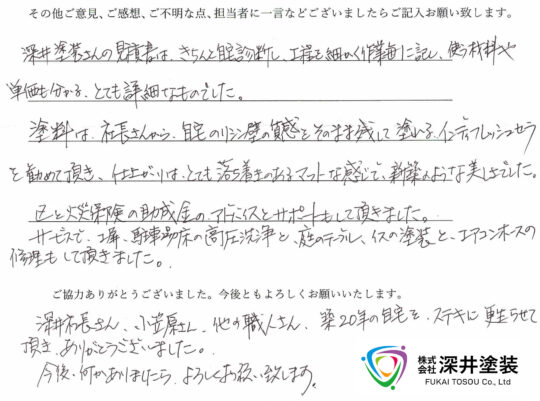 その他ご意見、ご感想、ご不明な点、担当者に一言などございましたらご記入お願い致します。
深井塗装さんの見積書は、きちんと自宅診断し、工程を細かく作業毎に記し、使う材料や
単価も分かる、とても詳細なものでした。
塗料は、社長さんから、自宅のリシン壁の質感をそのまま残して塗れる、インディフレッシュセラ
を勧めて頂き、仕上がりは、とても落ち着きのあるマットな感じで、新築のような美しさでした。
区と火災保険の助成金のアドバイスとサポートもして頂きました。
サービスで、塀、駐車場床の高圧洗浄と、庭のテーブル、イスの塗装と、エアコンホースの
修理もして頂きました。
ご協力ありがとうございました。今後ともよろしくお願いいたします。
深井社長さん、小笠原さん、他の職人さん、築20年の自宅を、ステキに更生させて
頂き、ありがとうございました。
今後、何かありましたら、よろしくお願い致します。
株式会社 深井塗装
FUKAI TOSOU Co., Ltd